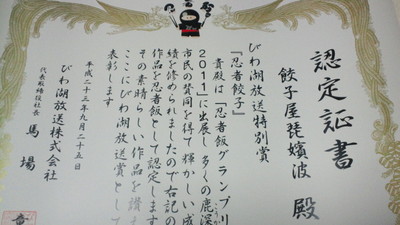 認定証書
餃子屋琵嬪波 殿
びわ湖放送特別賞
『忍者餃子』
貴殿は『忍者飯グランプリ
2011』に出展し多くの鹿深
市民の賛同を得て輝かしい成
績を修められましたので右記の
作品を忍者飯として認定します
その素晴らしい作品を讃え
ここにびわ湖放送賞として
表彰します
平成二十三年九月二十五日
びわ湖放送株式会社
代表取締役社長 馬場